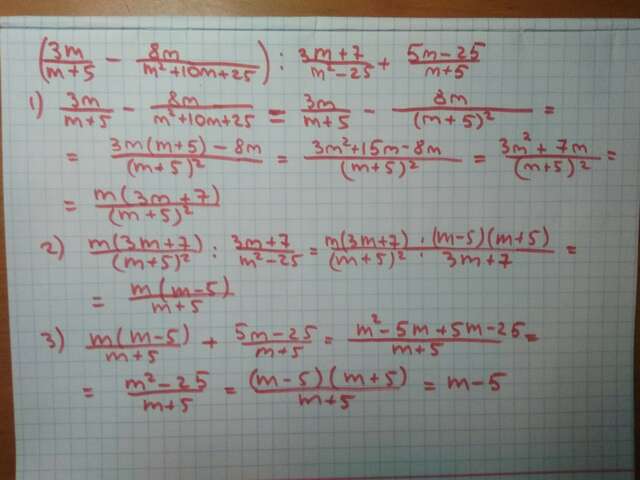 (3m/(m+5) - 8m/(m²+10m+25)) : (3m+7)/(m²-25) + (5m-25)/(m+5)
1) 3m/(m+5) - 8m/(m²+10m+25) = 3m/(m+5) - 8m/(m+5)² =
= (3m(m+5)-8m)/(m+5)² = (3m²+15m-8m)/(m+5)² = (3m²+7m)/(m+5)² =
= m(3m+7)/(m+5)²
2) m(3m+7)/(m+5)² : (3m+7)/(m²-25) = m(3m+7)/(m+5)² : (m-5)(m+5)/(3m+7) =
= m(m-5)/(m+5)
3) m(m-5)/(m+5) + (5m-25)/(m+5) = (m²-5m+5m-25)/(m+5) =
= (m²-25)/(m+5) = (m-5)(m+5)/(m+5) = m-5